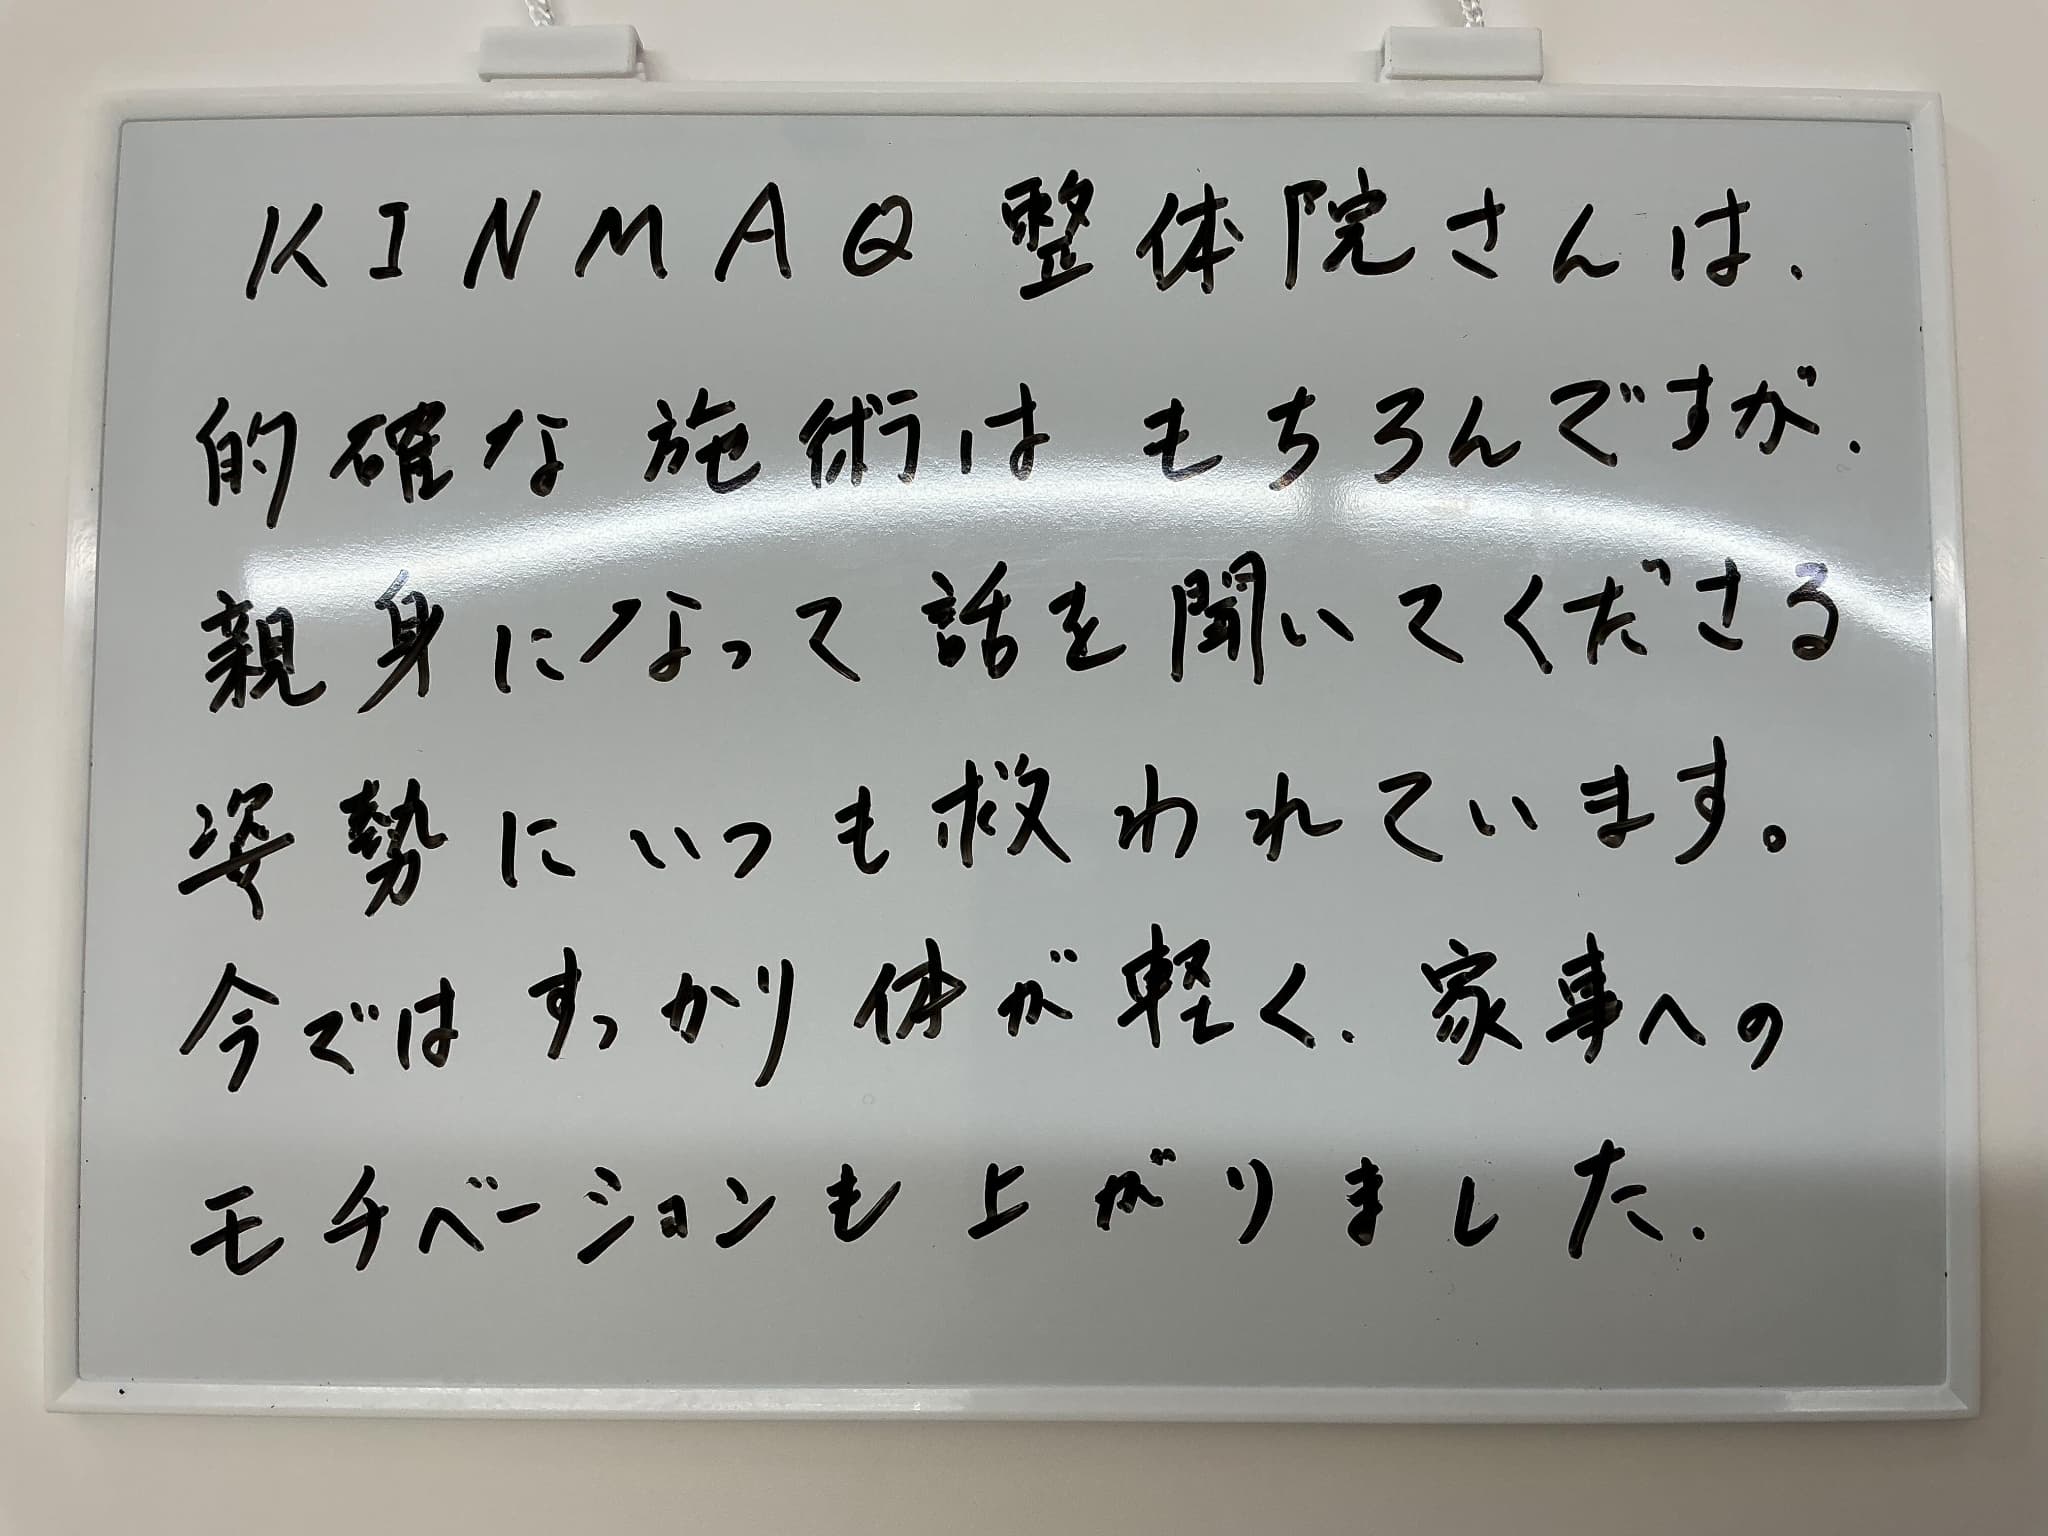 KINMAQ整体院さんは、
的確な施術はもちろんですが、
親身になって話を聞いてくださる
姿勢にいつも救われています。
今ではすっかり体が軽く、家事への
モチベーションも上がりました.